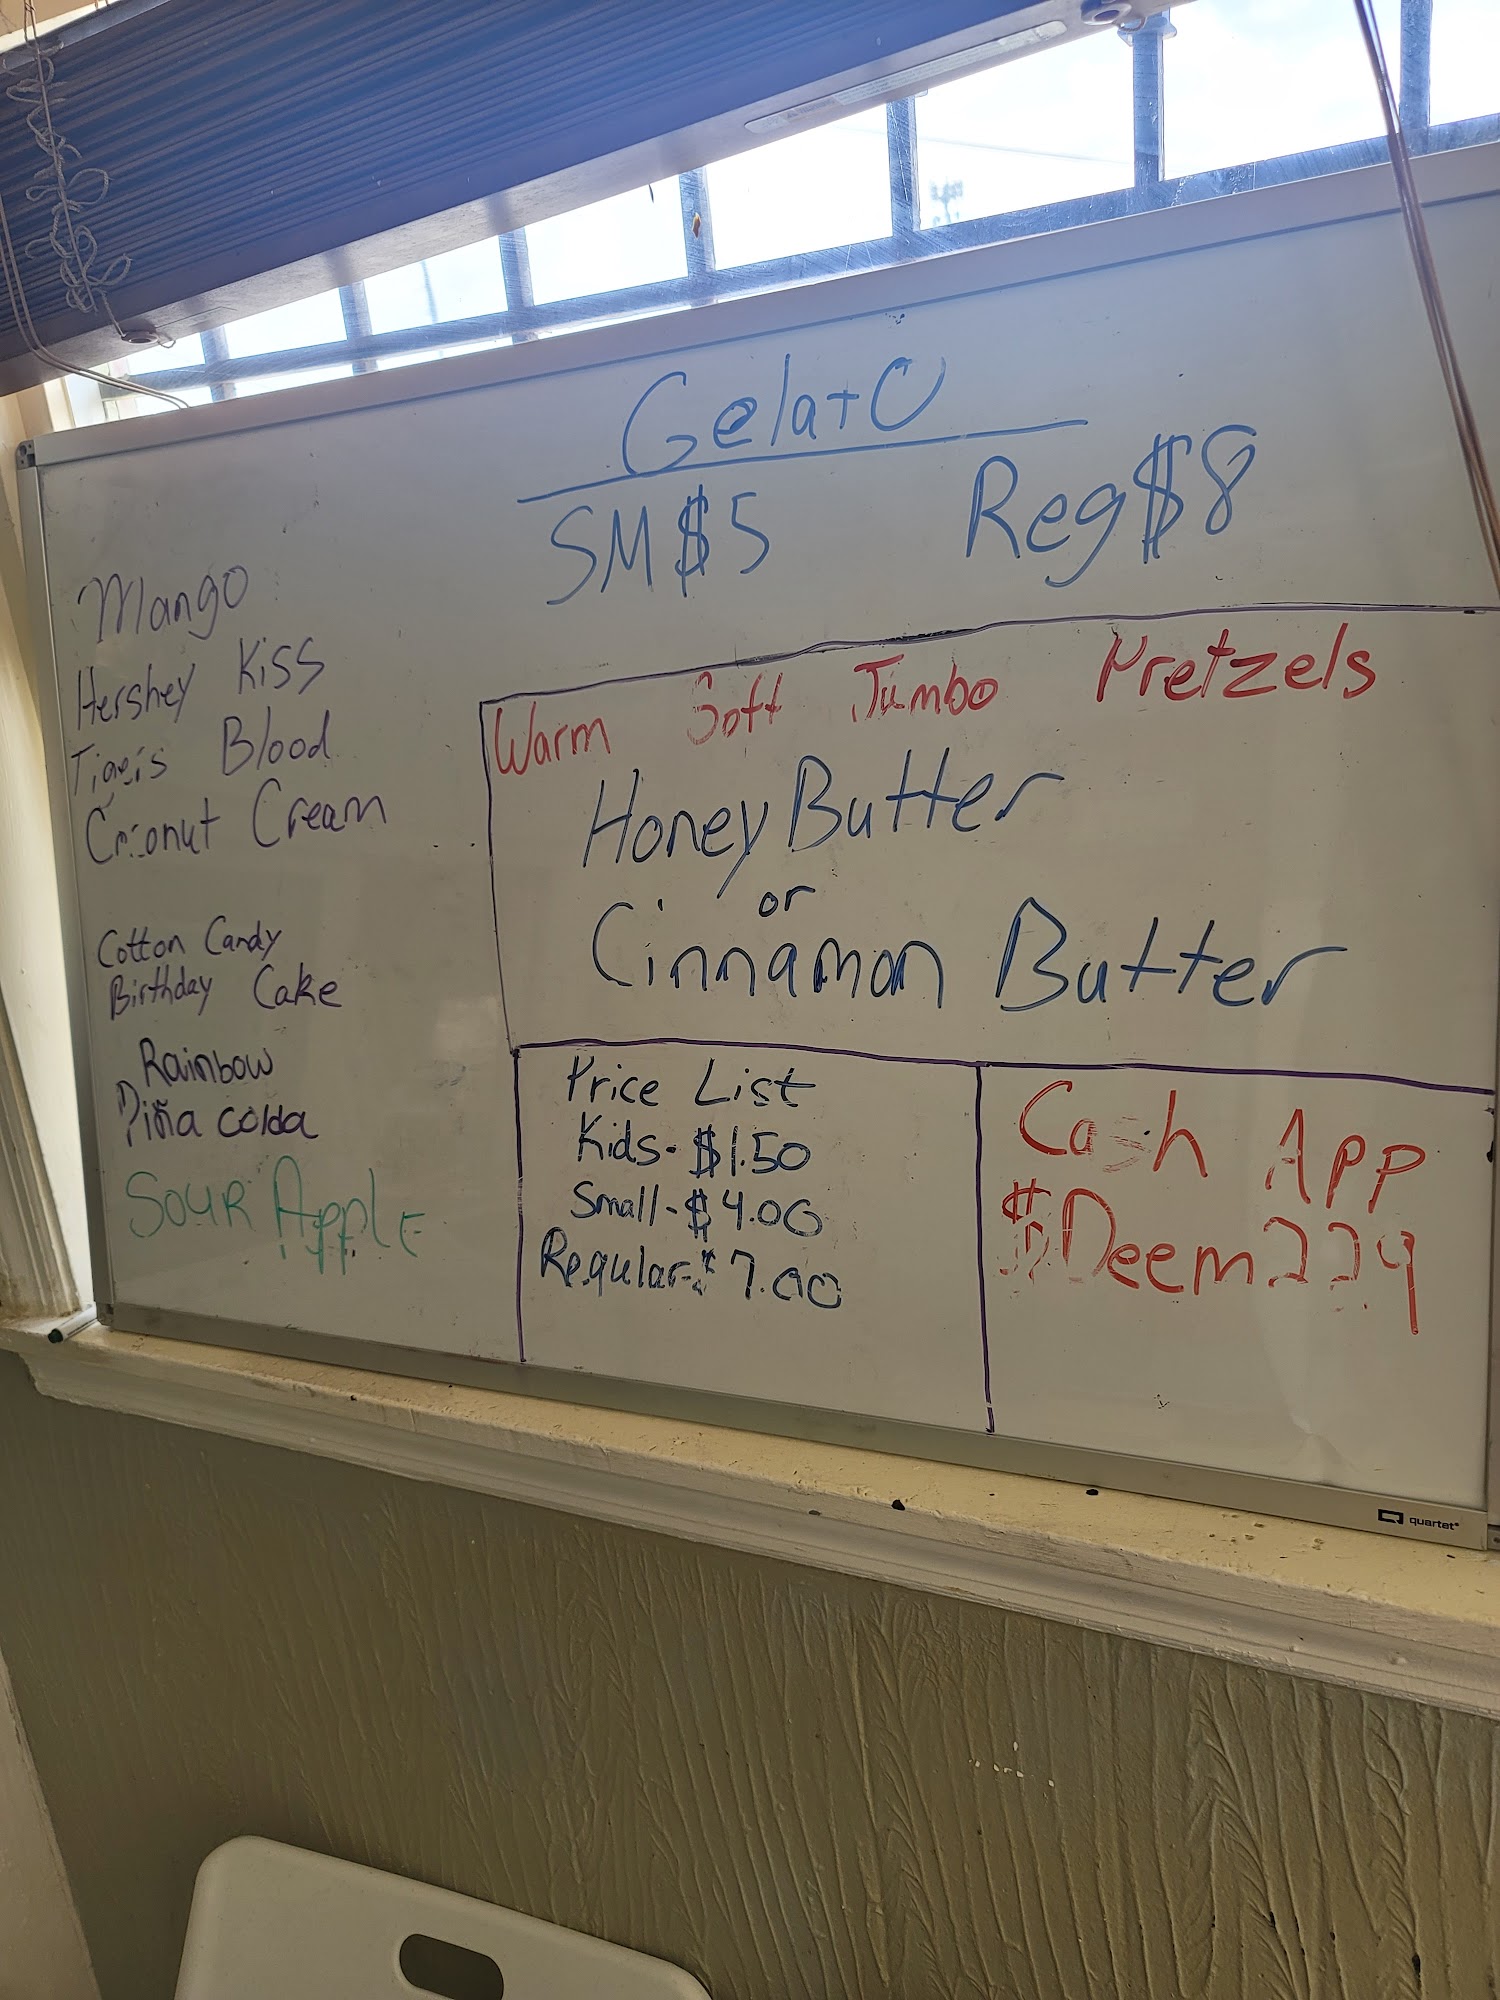 Gelato
SM $5 Reg $8
Mango
Hershey Kiss
Tiger's Blood
Coconut Cream
Cotton Candy
Birthday Cake
Rainbow
Piña colda
Sour Apple
Warm Soft Jumbo Pretzels
Honey Butter
or
Cinnamon Butter
Price List
Kids- $1.50
Small- $4.00
Regular- $7.00
Cash App
$Deem229
quartet